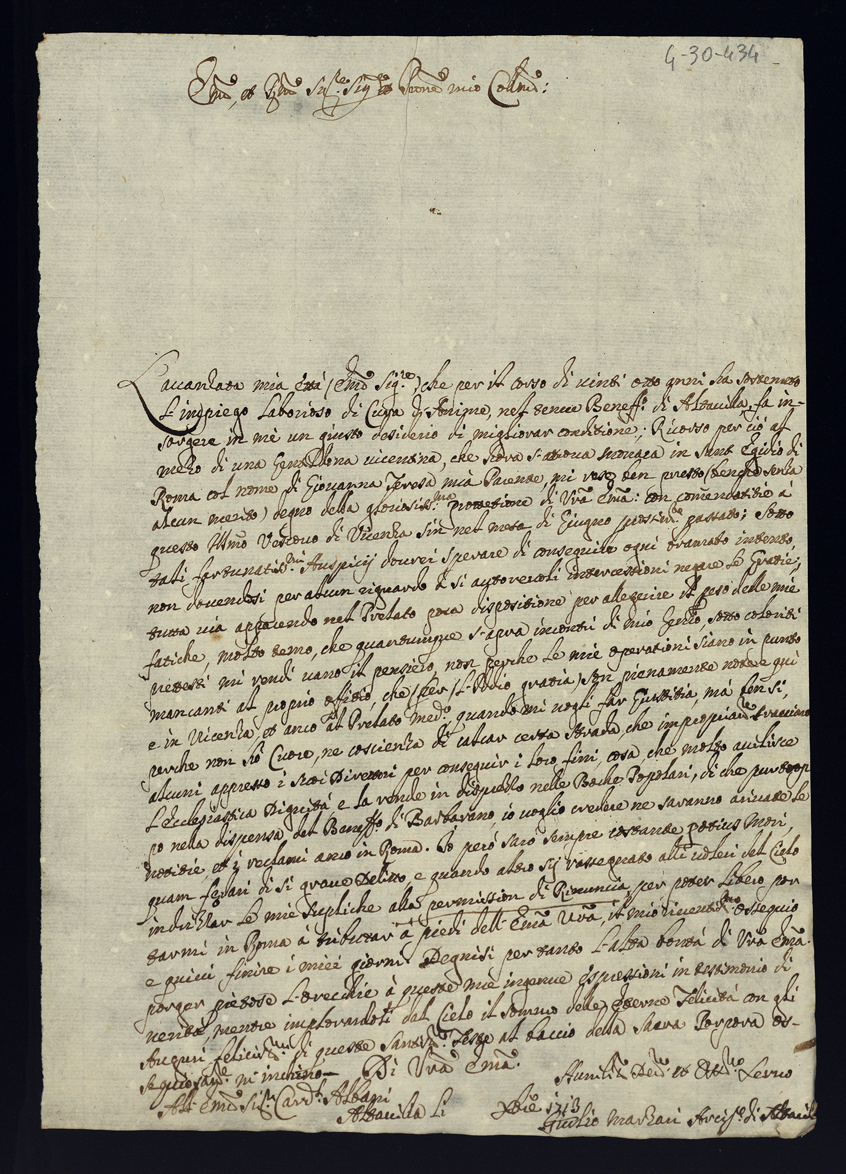 4-30-434
Em̃o, et Rm̃o Sig.re Sig.re et Pron̄e mio Coll.mo:
L'avanzata mia età (Em̃o Sig.re) che per il corso di vinti otto anni ha sostenuto
l'impiego laborioso di Cura d'Anime, nel tenue Beneff.o di Altavilla, fa in-
sorgere in mè un giusto desiderio di migliorar conditione; Ricorso per ciò al
mezo di una Gentildona vicentina, che hora s'attrova monaca in Sant' Egidio di
Roma col nome di Giovanna Teresa mia Parente, mi rese ben presto (benche senza
alcun merito) degno della gloriosiss.ma protettione di Vr̃a Em̃a: con comendatitie à
questo Ill.mo Vescovo di Vicenza sin nel mese di Giugno prossim.e passato; Sotto
tali fortunatis.mi Auspicij dovrei sperare di conseguire ogni bramato intento,
non dovendosi per alcun riguardo à si autorevoli intercessioni negare le Gratie;
tutta via apparendo nel Prelato poca dispositione per allegerire il peso delle mie
fatiche, molto temo, che quantunque s'apra incontri di mio Genio, sotto coloriti
pretesti mi rendi vano il pensiero, non perche le mie operationi siano in punto
mancanti al proprio offitio, che (per l'Iddio gratia) son pienamente note e quì
e in Vicenza, et anco al Prelato med.o, quando mi vogli far Giustitia, mà ben sì,
perche non hò Cuore, ne coscienza di calcar certa strada, che impropriam.te tracciano
alcuni appresso i suoi Direttori per conseguir i loro fini, cosa che molto avilisce
l'Ecclesiastica Dignità e la rende in dispreggio nelle Boche Popolari, di che pur trop
po nella dispensa del Beneff.o di Barbarano, io voglio credere ne saranno arivate le
notitie, et i reclami anco in Roma. Io però sarò sempre costante potius mori,
quam fedari di si grave Delitto, e quando altro sij rassegnato alli voleri del Cielo
indrizzar le mie supliche alla permission di Rinuncia, per poter libero por
tarmi in Roma à tributar à piedi dell'Em̃a Vr̃a, il mio riverentis.mo ossequio
e quivi finire i miei giorni. Degnisi per tanto l'alta bontà di Vr̃a Em̃a
porger pietose l'orecchie à queste mie ingenue espressioni in testimonio di
verità, mentre implorandoli dal Cielo il sommo delle eterne Felicità con gli
Auguri felicis.mi di queste Santis.me Feste al baccio della Sacra Porpora os-
sequiosam.e m'inchino— Di Vr̃a Em̃a
All' Em̃o Sig.r Card.l Albani
Humilis.o Dev.o et Obl.mo Servo
Altavilla li Xbre 1713
Giulio Marzari Arcip.e di Altavilla